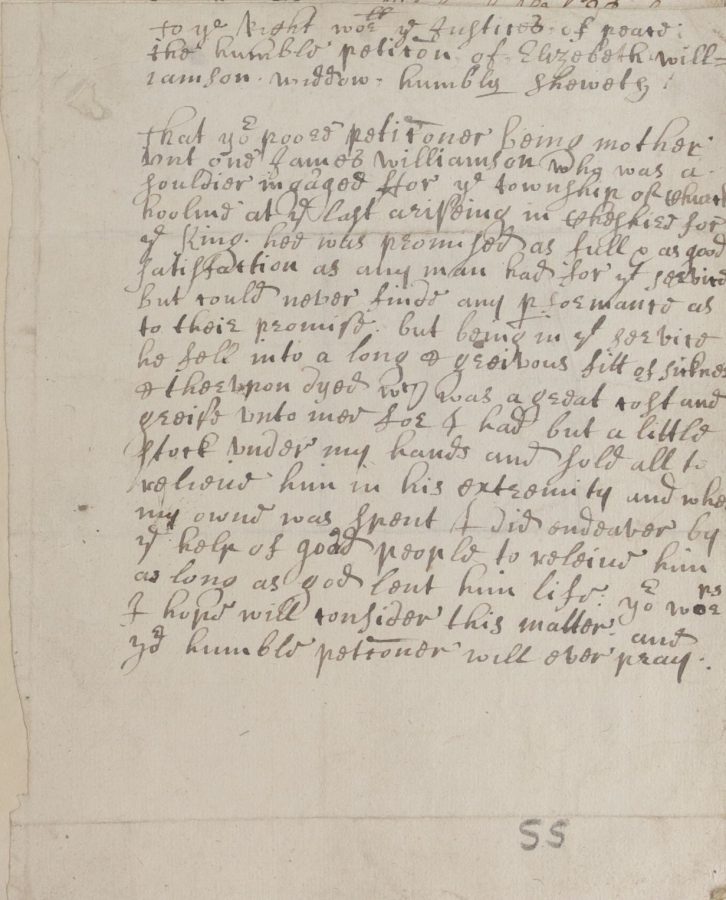 To ye Right worll ye Justices of peace:
the humble peticon of Elizebeth Will=
iamson widdow humbly sheweth:
That yor poore peticoner being mother
unt one James Williamson who was a
souldier ingaged ffor ye township of
hooline at ye last ariseing in Cheshiere for
ye King. hee was promised as full & as good
satisfaction as any man had for yt service
but could never finde any pformance as
to their promise. but being in yt service
he fell into a long & greivous fitt of sicknes
& thereupon dyed wch was a great cost and
greife unto mee for I had but a little
stock under my hands and sold all to
releive him in his extremity and when
my owne was spent I did endeaver by
ye help of good people to releive him
as long as god lent him life. yor worps
I hope will consider this matter and
yor humble petconer will ever pray.
SS